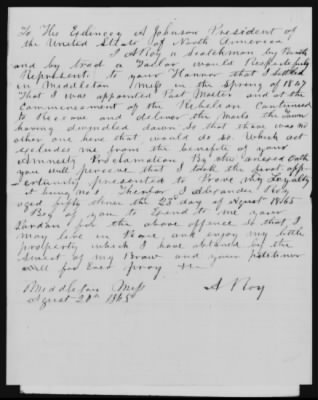 To His Exlencey A Johnson President of
the United State of North America
I A Roy a Scotchman by Birth
and by trad a Tailor would Respectfuly
Represent to your Hannor that I Settled
in Middleton Miss in the Spring of 1847
That I was appointed Post Master and at the
Commencement of the Rebelion Continued
to Receve and deliver the Mails the Town
having dwindled down So that thare was no
other one here that would do So Which act
excludes me from the benefits of your
Amnesty Proclamation By the anexed Oath
you will perseve that I took the first opp-
ertunity presented to Prove my Loyalty
it being no 2 Therefor I Alexander Roy
aged fifty three the 23d day of Agust 1865
Beg of you to Exend to me your
Pardon for the above offence So that I
may live in Peace and enjoy my little
property which I have obtained by the
Sweat of my Brow and your petitioner
will for Ever pray &c
A Roy
Middleton Miss
Agust 20th 1865